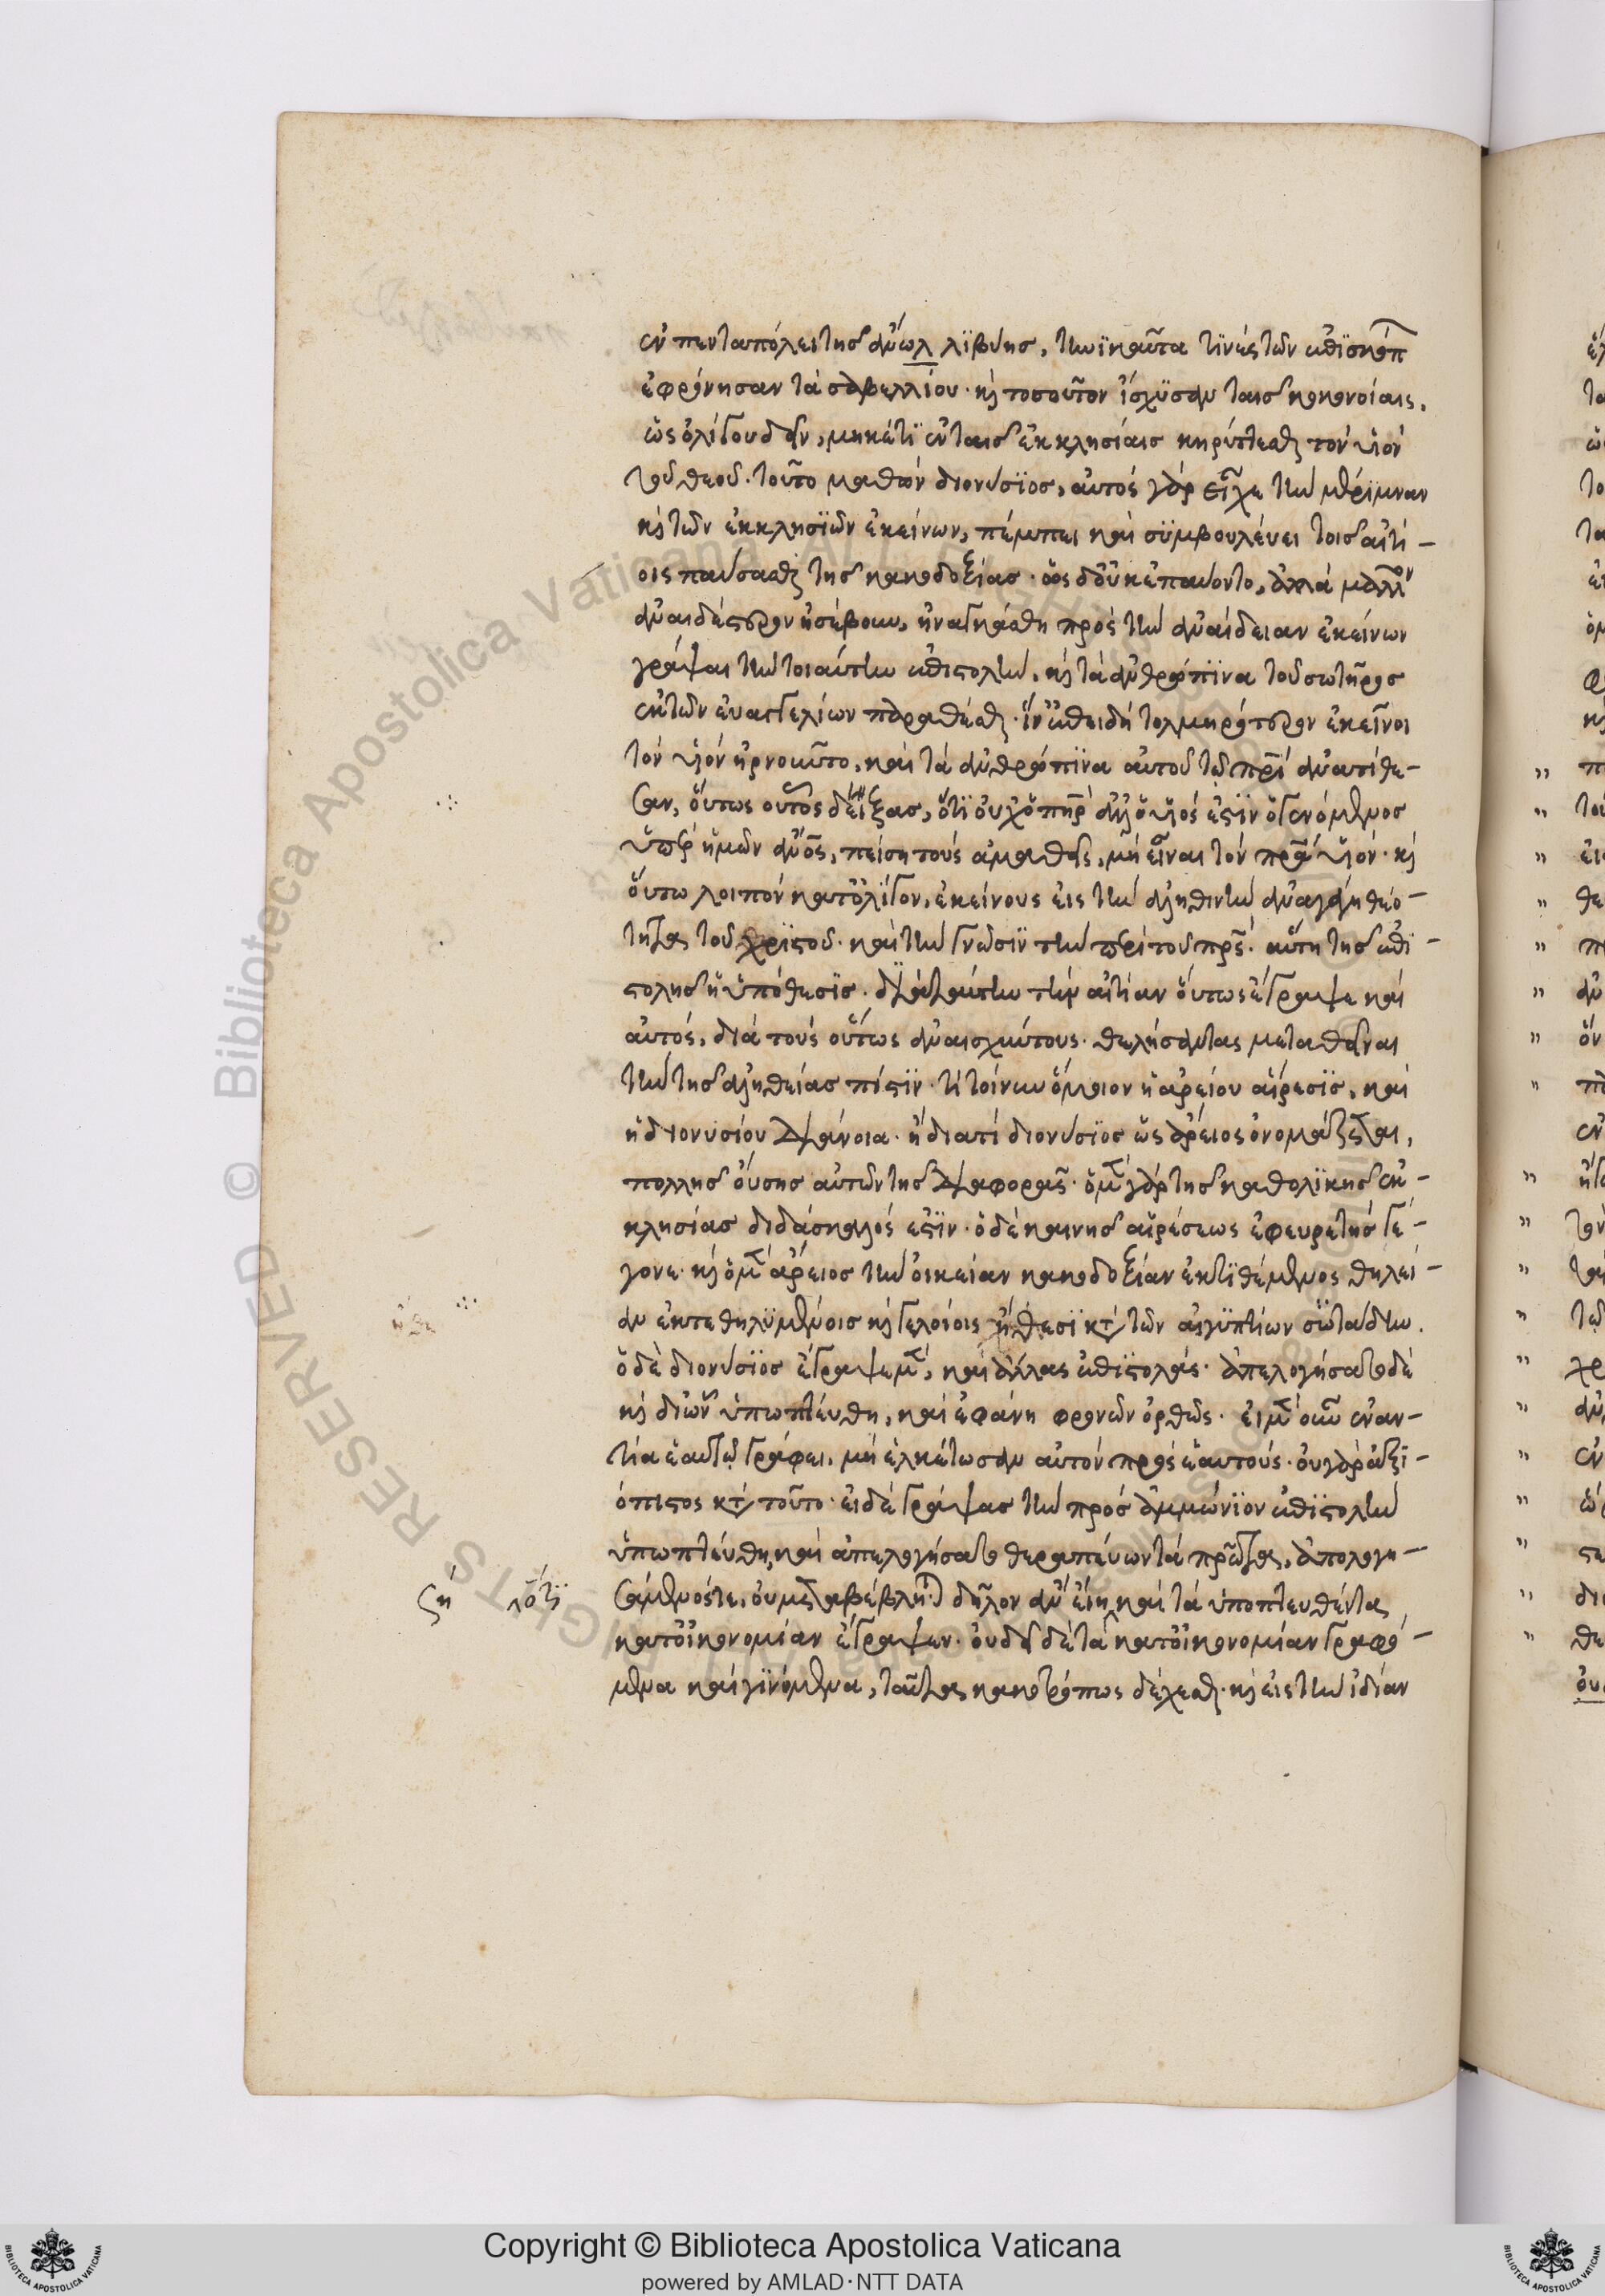 ἐν πενταπόλει τῆς ἄνω λιβύης, τηνικαῦτα τινὲς τῶν ἐπισκόπ
ἐφρόνησαν τὰ σαβελλίου· καὶ τοσοῦτον ἴσχυσαν ταῖς ἐπινοίαις,
ὡς ὀλίγου δεῖν, μηκέτι ἐν ταῖς ἐκκλησίαις κηρύττεσθαι τὸν υἱὸν
τοῦ θεοῦ. τοῦτο μαθὼν διονύσιος, αὐτὸς γὰρ εἶχε τὴν μέριμναν
καὶ τῶν ἐκκλησιῶν ἐκείνων, πέμπει καὶ συμβουλεύει τοῖς αἰτί-
οις παύσασθαι τῆς κακοδοξίας· ὡς δ' οὐκ ἐπαύοντο, ἀλλὰ μᾶλλον
ἀναιδέστερον ἠσέβουν, ἠναγκάσθη πρὸς τὴν ἀναίδειαν ἐκείνων
γράψαι τὴν τοιαύτην ἐπιστολὴν, καὶ τὰ ἀνθρώπινα τοῦ σωτῆρος
ἐκ τῶν εὐαγγελίων παραθέσθαι· ἵν' ἐπειδὴ τολμηρότερον ἐκεῖνοι
τὸν υἱὸν ἠρνοῦντο, καὶ τὰ ἀνθρώπινα αὐτοῦ τῷ πρὶ ἀνατίθε-
σαν, οὕτως οὗτος δείξας, ὅτι οὐχ ὁ πηρ ἀλλ' ὁ υἱός ἐστιν ὁ γενόμενος
ὑπὲρ ἡμῶν ἄνος, πείσῃ τοὺς ἀμαθεῖς, μὴ εἶναι τὸν πρα υἱόν· καὶ
οὕτω λοιπὸν κατ' ὀλίγον, ἐκείνους εἰς τὴν ἀληθινὴν ἀναγάγῃ θεό-
τητα τοῦ χριστοῦ· καὶ τὴν γνῶσιν τὴν περὶ τοῦ πρς. αὕτη τῆς ἐπι-
στολῆς ἡ ὑπόθεσις. διὰ ταύτην τὴν αἰτίαν οὕτως ἔγραψε καὶ
αὐτός, διὰ τοὺς οὕτως ἀναισχύντους θελήσαντας μεταθεῖναι
τὴν τῆς ἀληθείας πίστιν. τί τοίνυν ὅμοιον ἡ ἀρείου αἵρεσις, καὶ
ἡ διονυσίου διάνοια· ἢ διατί διονύσιος ὡς ἄρειος ὀνομάζεται,
πολλῆς οὔσης αὐτῶν τῆς διαφορᾶς· ὁ μὲν γὰρ τῆς καθολικῆς ἐκ-
κλησίας διδάσκαλός ἐστιν· ὁ δὲ καινῆς αἱρέσεως ἐφευρετὴς γέ-
γονε· καὶ ὁ μὲν ἄρειος τὴν οἰκείαν κακοδοξίαν ἐκτιθέμενος θηλεί-
αν ἐκτεθηλυμένοις καὶ γελοίοις ἤθεσι κατὰ τῶν αἰγυπτίων σωτάδην.
ὁ δὲ διονύσιος ἔγραψε μὲν, καὶ ἄλλας ἐπιστολάς· ἀπελογήσατο δὲ
καὶ δι' ὧν ὑπωπτεύθη, καὶ ἐφάνη φρονῶν ὀρθῶς. εἰ μὲν οὖν ἐναν-
τία ἑαυτῷ γράφει, μὴ ἑλκέτωσαν αὐτὸν πρὸς ἑαυτούς· οὐ γὰρ ἀξι-
όπιστος κατὰ τοῦτο· εἰ δὲ γράψας τὴν πρὸς ἀμμώνιον ἐπιστολὴν
ὑπωπτεύθη, καὶ ἀπελογήσατο θεραπεύων τὰ πρῶτα, ἀπολογη-
σάμενός τε, οὐ μεταβέβληται δῆλον ἂν εἴη καὶ τὰ ὑποπτευθέντα
κατ' οἰκονομίαν ἔγραψεν. οὐ δεῖ δὲ τὰ κατ' οἰκονομίαν γραφό-
μενα καὶ γινόμενα, ταῦτα κακοτρόπως δέχεσθαι· καὶ εἰς τὴν ἰδίαν